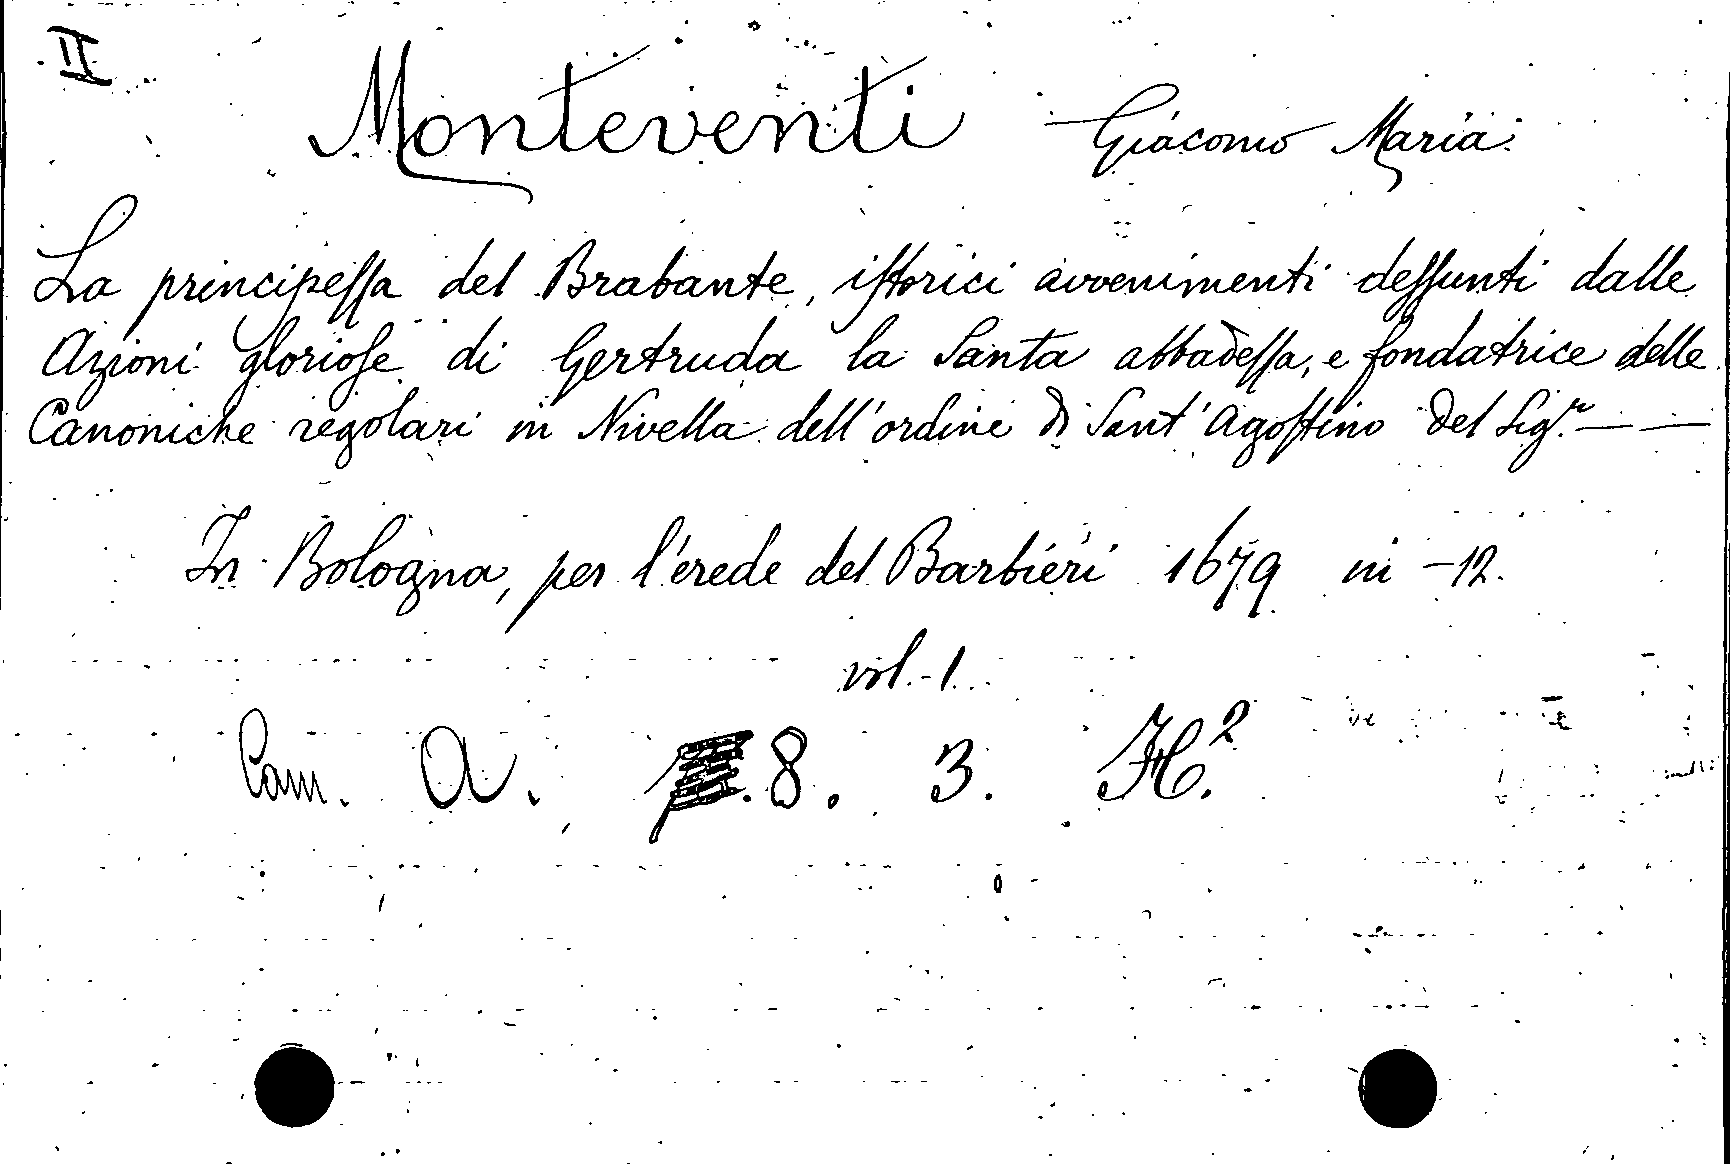 II
Monteventi Giacomo Maria
La principessa del Brabante, istorici avvenimenti dessunti dalle
Azioni gloriose di Gertruda la Santa abbadessa, e fondatrice delle
Canoniche regolari in Nivella dell'ordine di Sant'Agostino del Sig.r — —
In Bologna, per l'erede del Barbieri 1679 in-12.
vol. 1.
Cam. A. 8. 3. H.2